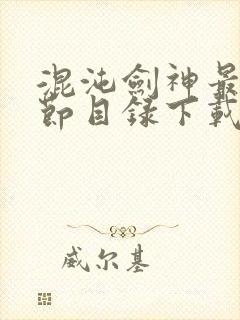 混沌劍神最
節目録下載
威尔基